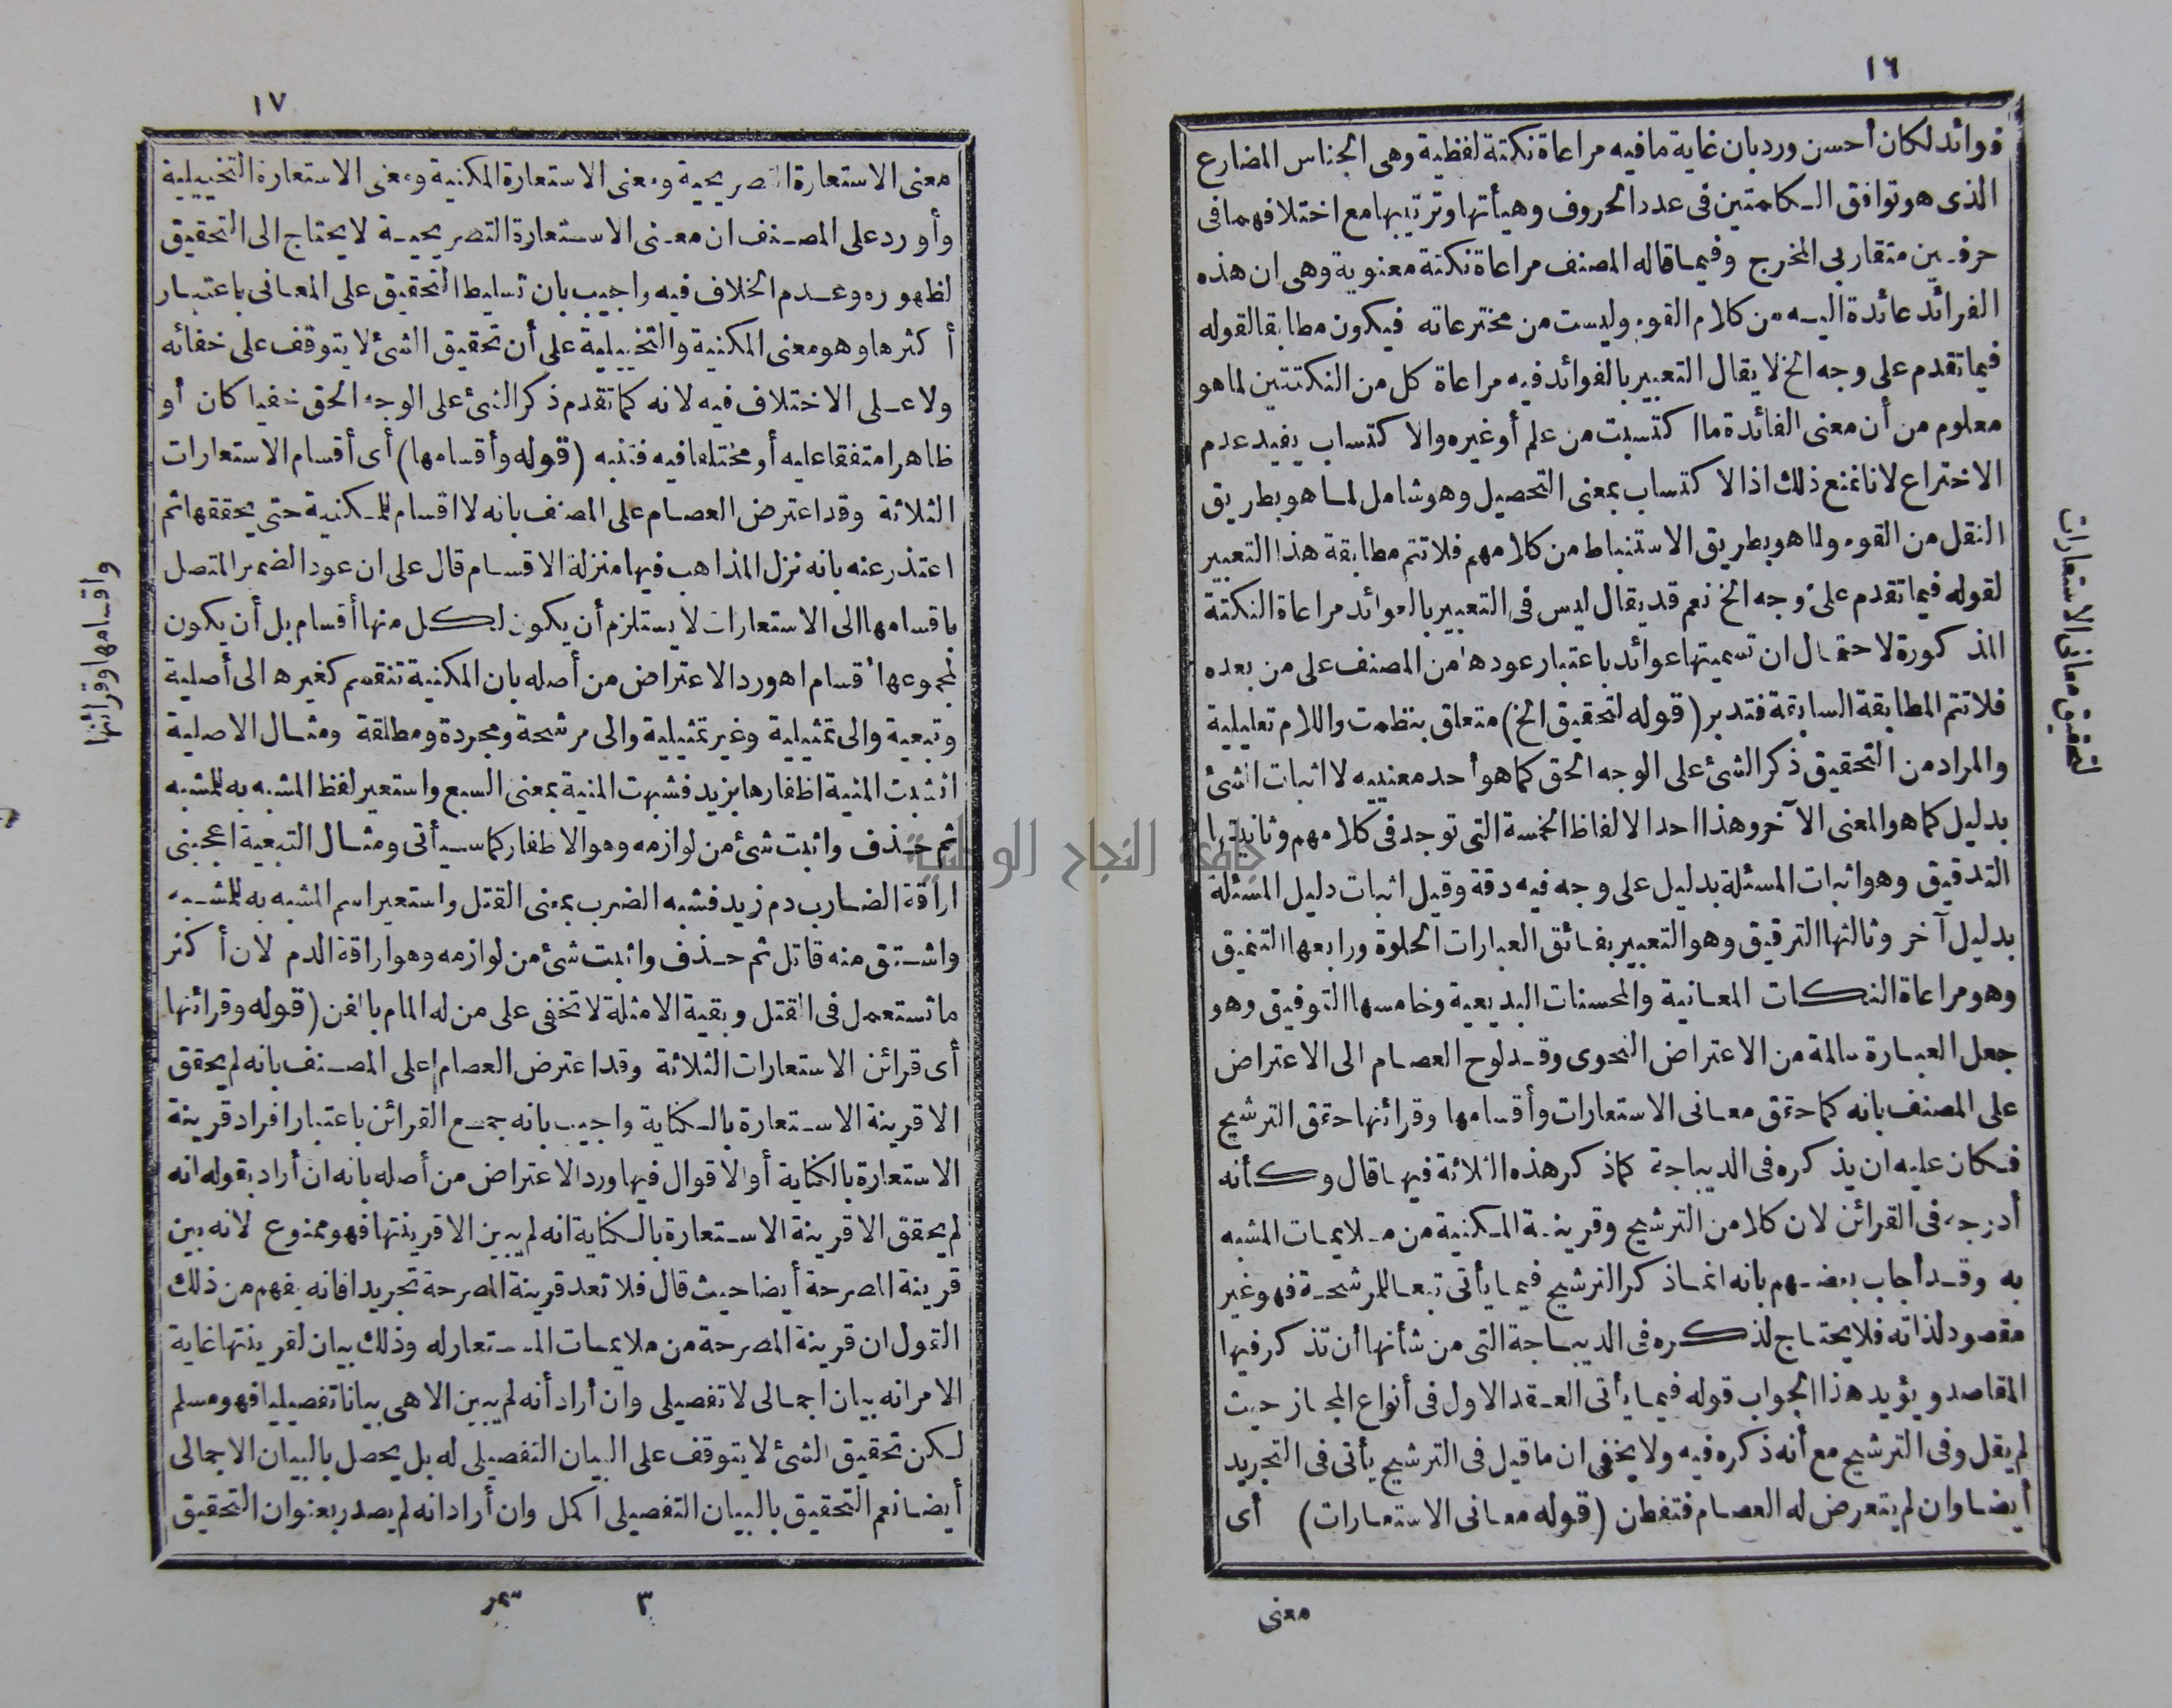 ١٦
فوائد لكان أحسن ورد بان غاية ما فيه مراعاة نكتة لفظية وهى الجناس المضارع
الذى هو توافق الكلمتين فى عدد الحروف وهيأتها وترتيبها مع اختلافهما فى
حرفين متقاربى المخرج وفيما قاله المصنف مراعاة نكتة معنوية وهى ان هذه
الفرائد عائدة اليه من كلام القوم وليست من مخترعاته فيكون مطابقا لقوله
فيما تقدم على وجه الخ لا يقال التعبير بالفوائد فيه مراعاة كل من النكتتين لما هو
معلوم من أن معنى الفائدة ما اكتسبت من علم أو غيره والاكتساب يفيد عدم
الاختراع لانا نمنع ذلك اذ الاكتساب بمعنى التحصيل وهو شامل لما هو بطريق
النقل من القوم ولما هو بطريق الاستنباط من كلامهم فلا تتم مطابقة هذا التعبير
لقوله فيما تقدم على وجه الخ نعم قد يقال ليس فى التعبير بالعوائد مراعاة النكتة
المذكورة لاحتمال ان تسميتها عوائد باعتبار عودها من المصنف على من بعده
فلا تتم المطابقة السابقة فتدبر (قوله لتحقيق الخ) متعلق بنظمت واللام تعليلية
والمراد من التحقيق ذكر الشئ على الوجه الحق كما هو أحد معنييه لا اثبات الشئ
بدليل كما هو المعنى الآخر وهذا احد الالفاظ الخمسة التى توجد فى كلامهم وثانيها
التدقيق وهو اثبات المسئلة بدليل على وجه فيه دقة وقيل اثبات دليل المسئلة
بدليل آخر وثالثها الترقيق وهو التعبير بفائق العبارات الحلوة ورابعها التنميق
وهو مراعاة النكات المعانية والمحسنات البديعية وخامسها التوفيق وهو
جعل العبارة سالمة من الاعتراض النحوى وقد لوح العصام الى الاعتراض
على المصنف بانه كما حقق معانى الاستعارات وأقسامها وقرائنها حقق الترشيح
فكان عليه ان يذكره فى الديباجة كما ذكر هذه الثلاثة فيها قال وكأنه
أدرجه فى القرائن لان كلا من الترشيح وقرينة المكنية من ملايمات المشبه
به وقد أجاب بعضهم بانه انما ذكر الترشيح فيما يأتى تبعا للمرشحة فهو غير
مقصود لذاته فلا يحتاج لذكره فى الديباجة التى من شأنها أن تذكر فيها
المقاصد ويؤيد هذا الجواب قوله فيما يأتى العقد الاول فى أنواع المجاز حيث
لم يقل وفى الترشيح مع أنه ذكره فيه ولا يخفى ان ما قيل فى الترشيح يأتى فى التجريد
أيضا وان لم يتعرض له العصام فتفطن (قوله معانى الاستعارات) أى
معنى
لتحقيق معانى الاستعارات
١٧
معنى الاستعارة التصريحية ومعنى الاستعارة المكنية ومعنى الاستعارة التخييلية
وأورد على المصنف ان معنى الاستعارة التصريحية لا يحتاج الى التحقيق
لظهوره وعدم الخلاف فيه واجيب بان تسليط التحقيق على المعانى باعتبار
أكثرها وهو معنى المكنية والتخييلية على أن تحقيق الشئ لا يتوقف على خفائه
ولا على الاختلاف فيه لانه كما تقدم ذكر الشئ على الوجه الحق خفيا كان أو
ظاهرا متفقا عليه أو مختلفا فيه فتنبه (قوله وأقسامها) أى أقسام الاستعارات
الثلاثة وقد اعترض العصام على المصنف بانه لا اقسام للمكنية حتى يحققها ثم
اعتذر عنه بانه نزل المذاهب فيها منزلة الاقسام قال على ان عود الضمير المتصل
باقسامها الى الاستعارات لا يستلزم أن يكون لكل منها أقسام بل أن يكون
لمجموعها أقسام اه ورد الاعتراض من أصله بان المكنية تنقسم كغيرها الى أصلية
وتبعية والى تمثيلية وغير تمثيلية والى مرشحة ومجردة ومطلقة ومثال الاصلية
انشبت المنية اظفارها بزيد فشبهت المنية بمعنى السبع واستعير لفظ المشبه به للمشبه
ثم حذف واثبت شئ من لوازمه وهو الاظفار كما سيأتى ومثال التبعية اعجبنى
اراقة الضارب دم زيد فشبه الضرب بمعنى القتل واستعير اسم المشبه به للمشبه
واشتق منه قاتل ثم حذف واثبت شئ من لوازمه وهو اراقة الدم لان أكثر
ما تستعمل فى القتل وبقية الامثلة لا تخفى على من له المام بالفن (قوله وقرائنها
أى قرائن الاستعارات الثلاثة وقد اعترض العصام على المصنف بانه لم يحقق
الا قرينة الاستعارة بالكناية واجيب بانه جمع القرائن باعتبار افراد قرينة
الاستعارة بالكناية أو الاقوال فيها ورد الاعتراض من أصله بانه ان أراد بقوله انه
لم يحقق الا قرينة الاستعارة بالكناية انه لم يبين الا قرينتها فهو ممنوع لانه بين
قرينة المصرحة أيضا حيث قال فلا تعد قرينة المصرحة تجريدا فانه يفهم من ذلك
القول ان قرينة المصرحة من ملايمات المستعار له وذلك بيان لقرينتها غاية
الامر انه بيان اجمالى لا تفصيلى وان أراد أنه لم يبين الا هى بيانا تفصيليا فهو مسلم
لكن تحقيق الشئ لا يتوقف على البيان التفصيلى له بل يحصل بالبيان الاجمالى
أيضا نعم التحقيق بالبيان التفصيلى اكمل وان أراد انه لم يصدر بعنوان التحقيق
٣
سمر
واقسامها وقرائنها
جامعة النجاح الوطنية